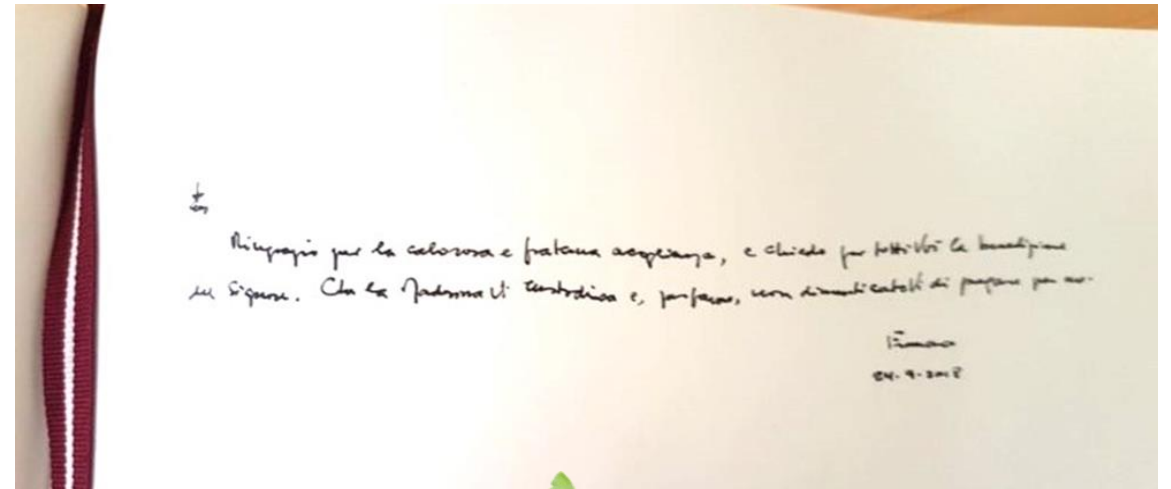 Ringrazio per la calorosa e fraterna accoglienza, e chiedo per tutti Voi la benedizione
del Signore. Che la Madonna Vi custodisca e, per favore, non dimenticatevi di pregare per me.
24-9-2018